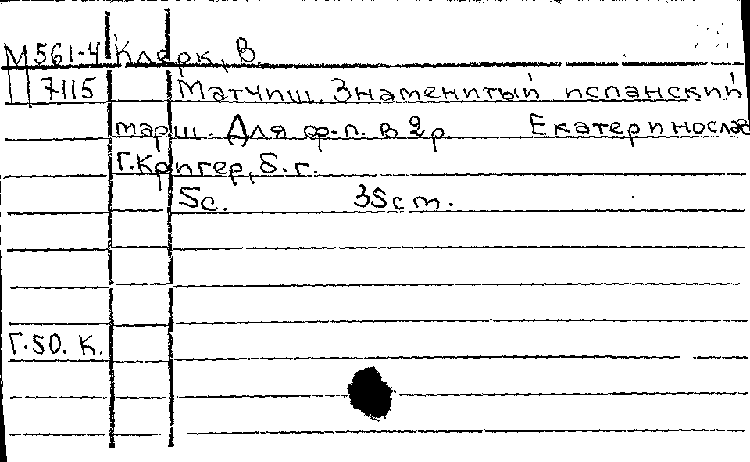 М561-4 Клерк, В.
7115 Матчиш. Знаменитый испанский
марш. Для ф.-п. в 2 р. Екатеринослав
Г. Кригер, б. г.
5с. 35cm.
Г.50. К.